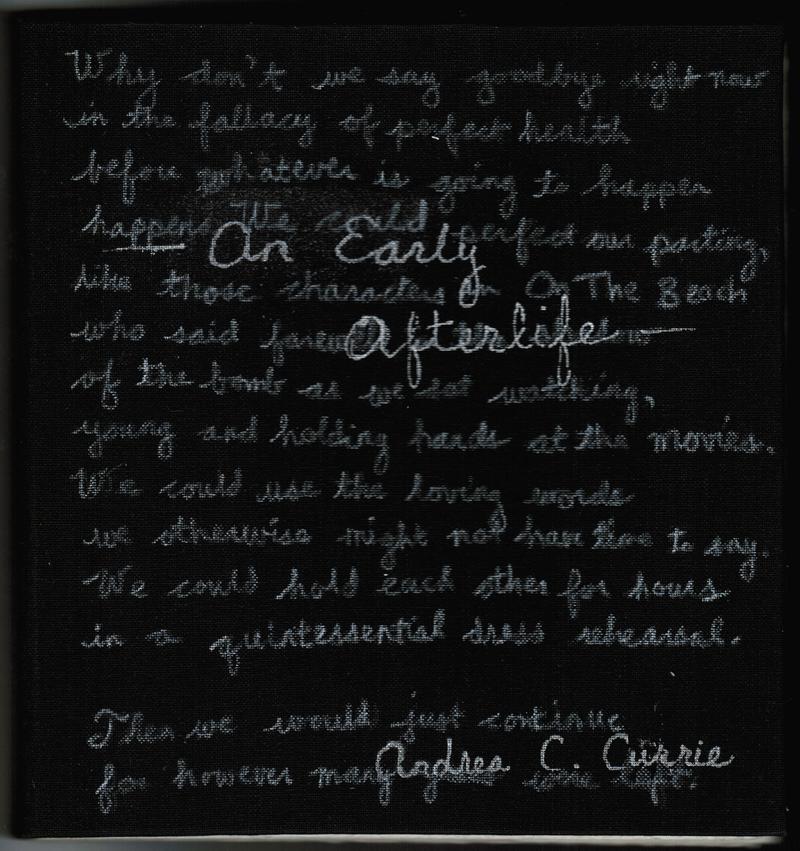 Why don't we say goodbye right now
in the fallacy of perfect health
before whatever is going to happen
happens. We could perfect our parting,
An Early
like those characters in On The Beach
who said
Afterlife
of the bomb as we sat watching,
young and holding hands at the movies.
We could use the loving words
we otherwise might not have time to say.
We could hold each other for hours
in a quintessential dress rehearsal.
Then we would just continue
Andrea C. Currie
for however many were left.